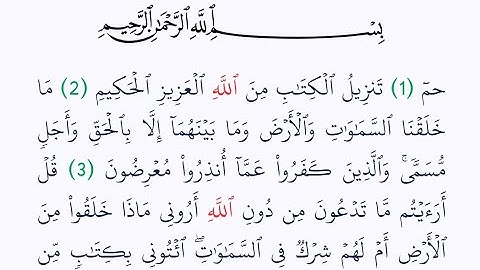 بِسْمِ اللَّهِ الرَّحْمَٰنِ الرَّحِيمِ
حمٓ (1) تَنزِيلُ الْكِتَٰبِ مِنَ اللَّهِ الْعَزِيزِ الْحَكِيمِ (2) مَا
خَلَقْنَا السَّمَٰوَٰتِ وَالْأَرْضَ وَمَا بَيْنَهُمَآ إِلَّا بِالْحَقِّ وَأَجَلٍ
مُّسَمًّىۚ وَالَّذِينَ كَفَرُوا۟ عَمَّآ أُنذِرُوا۟ مُعْرِضُونَ (3) قُلْ
أَرَءَيْتُم مَّا تَدْعُونَ مِن دُونِ اللَّهِ أَرُونِى مَاذَا خَلَقُوا۟ مِنَ
الْأَرْضِ أَمْ لَهُمْ شِرْكٌ فِى السَّمَٰوَٰتِۖ ائْتُونِى بِكِتَٰبٍ مِّن